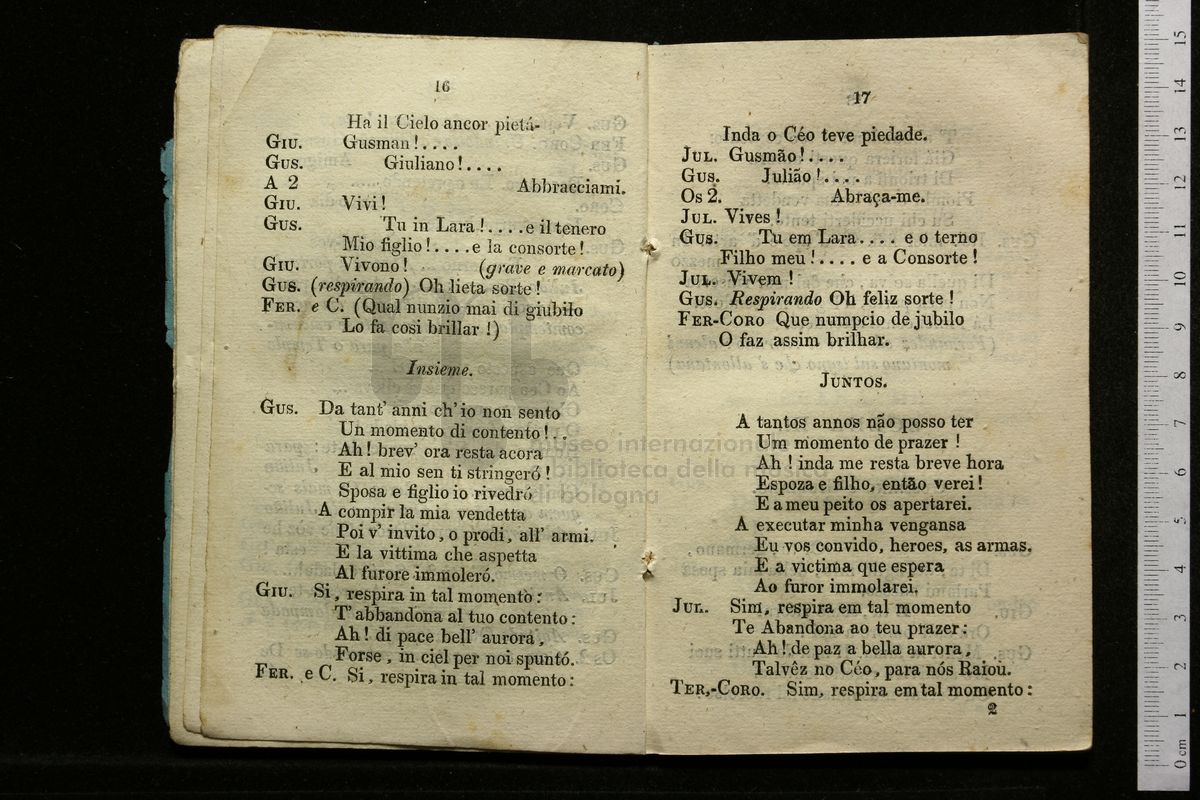 16
Ha il Cielo ancor pietá-
GIU. Gusman!....
GUS. Giuliano!....
A 2 Abbracciami.
GIU. Vivi!
GUS. Tu in Lara!....e il tenero
Mio figlio!....e la consorte!
GIU. Vivono! (grave e marcato)
GUS. (respirando) Oh lieta sorte!
FER. e C. (Qual nunzio mai di giubilo
Lo fa cosi brillar!)
Insieme.
GUS. Da tant' anni ch' io non sento
Un momento di contento!..
Ah! brev' ora resta acora
E al mio sen ti stringeró!
Sposa e figlio io rivedró
A compir la mia vendetta
Poi v' invito, o prodi, all' armi.
E la vittima che aspetta
Al furore immoleró.
GIU. Si, respira in tal momento:
T' abbandona al tuo contento:
Ah! di pace bell' aurora,
Forse, in ciel per noi spuntó.
FER. e C. Si, respira in tal momento:
17
Inda o Céo teve piedade.
JUL. Gusmão!....
GUS. Julião!....
Os 2. Abraça-me.
JUL. Vives!
GUS. Tu em Lara.... e o terno
Filho meu!.... e a Consorte!
JUL. Vivem!
GUS. Respirando Oh feliz sorte!
FER-CORO Que numpcio de jubilo
O faz assim brilhar.
JUNTOS.
A tantos annos não posso ter
Um momento de prazer!
Ah! inda me resta breve hora
Espoza e filho, então verei!
E a meu peito os apertarei.
A executar minha vengansa
Eu vos convido, heroes, as armas.
E a victima que espera
Ao furor immolarei.
JUL. Sim, respira em tal momento
Te Abandona ao teu prazer:
Ah! de paz a bella aurora,
Talvêz no Céo, para nós Raiou.
TER,-CORO. Sim, respira em tal momento:
2
museo internazionale
biblioteca della musica
di bologna
0 cm 1 2 3 4 5 6 7 8 9 10 11 12 13 14 15